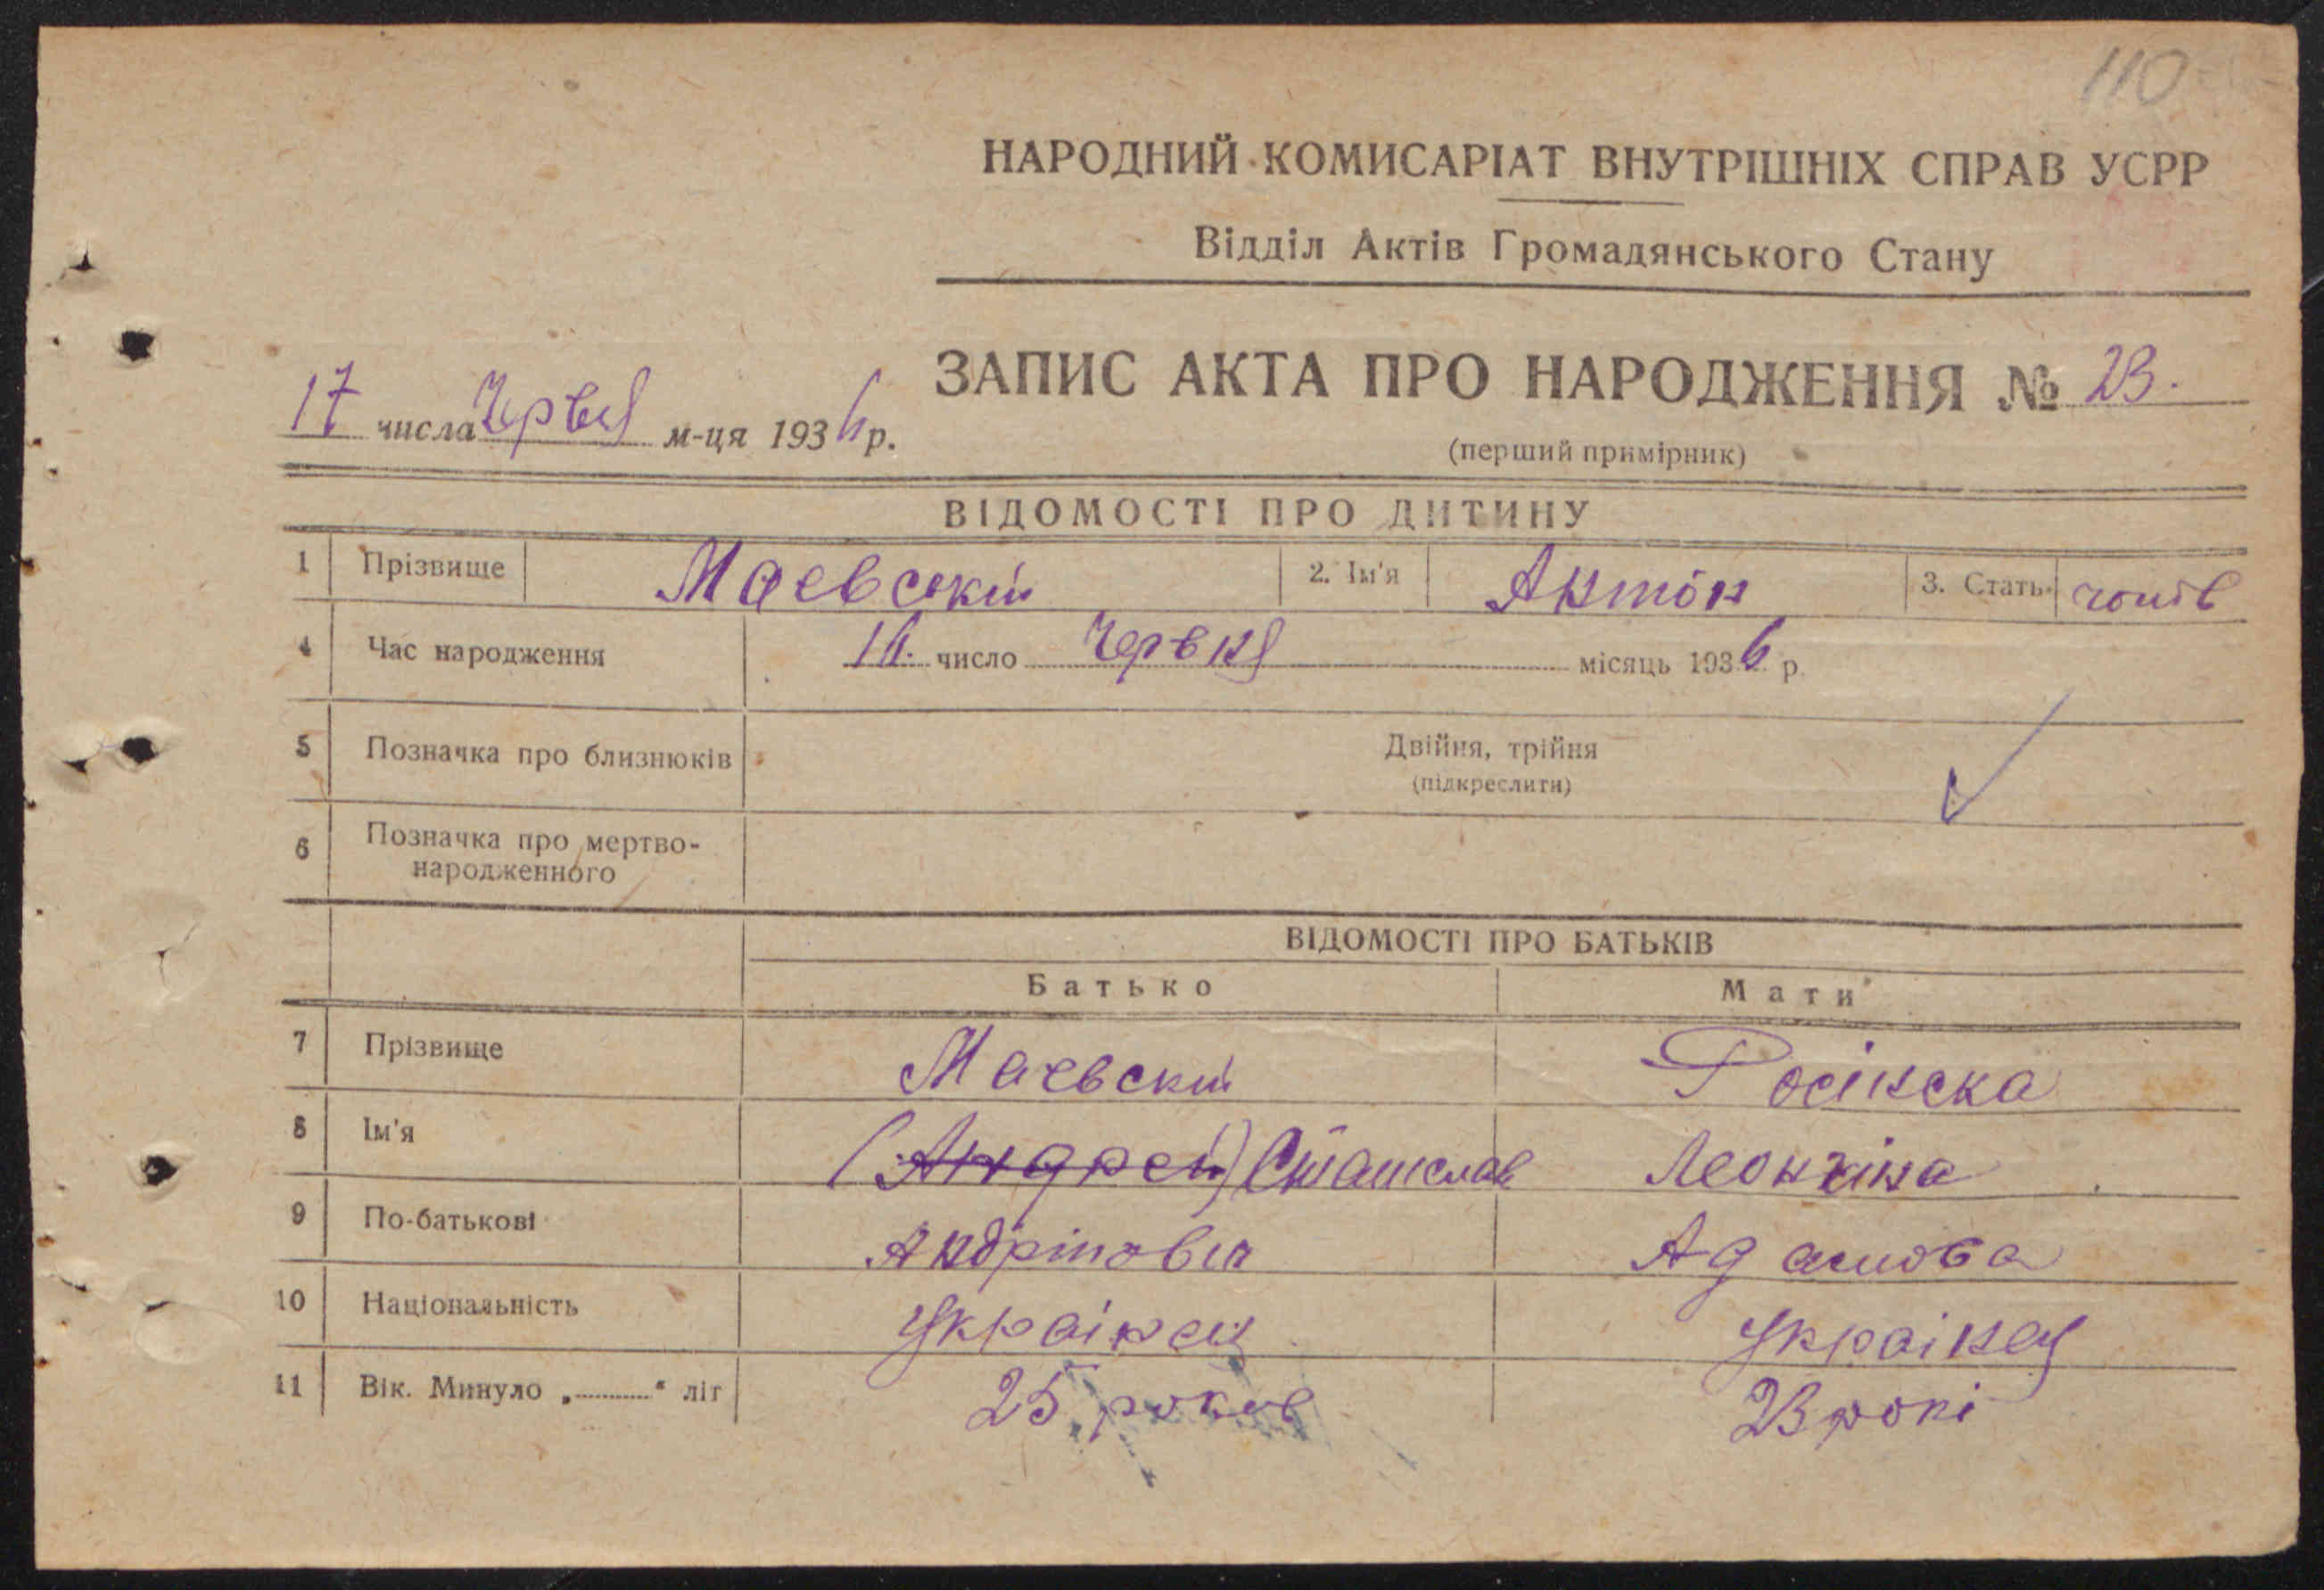 110
НАРОДНИЙ КОМИСАРІАТ ВНУТРІШНІХ СПРАВ УСРР
Відділ Актів Громадянського Стану
ЗАПИС АКТА ПРО НАРОДЖЕННЯ № 23.
17 числа Червня м-ця 1936 р.
(перший примірник)
ВІДОМОСТІ ПРО ДИТИНУ
1 Прізвище Маевский 2. Ім'я Антон 3. Стать
4 Час народження число Червня місяць 1936 р.
5 Позначка про близнюків Двійня, трійня
(підкреслити)
6 Позначка про мертво-
народженного
ВІДОМОСТІ ПРО БАТЬКІВ
Батько Мати
7 Прізвище Маевский Росінска
8 Ім'я (Андрей) Станіслав
9 По-батькові Адамова
10 Національність Українец Українец
11 Вік. Минуло „ “ літ 25 років 23 рокі